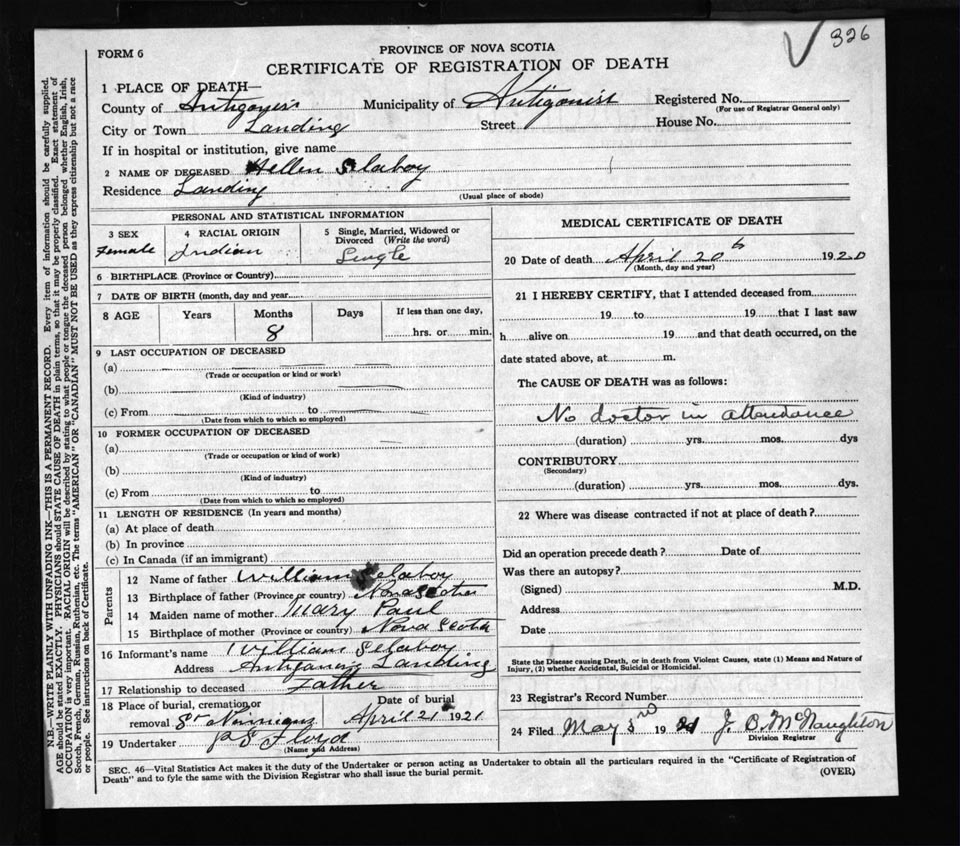 326
FORM 6
PROVINCE OF NOVA SCOTIA
CERTIFICATE OF REGISTRATION OF DEATH
1 PLACE OF DEATH—
County of Municipality of Antigonish Registered No.
(For use of Registrar General only)
City or Town Landing Street House No.
If in hospital or institution, give name
2 NAME OF DECEASED Hellen
Residence Landing
(Usual place of abode)
PERSONAL AND STATISTICAL INFORMATION
3 SEX 4 RACIAL ORIGIN 5 Single, Married, Widowed or Divorced (Write the word)
Female Indian Single
6 BIRTHPLACE (Province or Country)
7 DATE OF BIRTH (month, day and year
8 AGE Years Months Days If less than one day,
8 hrs. or min.
9 LAST OCCUPATION OF DECEASED
(a)
(Trade or occupation or kind or work)
(b)
(Kind of industry)
(c) From to
(Date from which to which so employed)
10 FORMER OCCUPATION OF DECEASED
(a)
(Trade or occupation or kind of work)
(b)
(Kind of industry)
(c) From to
(Date from which to which so employed)
11 LENGTH OF RESIDENCE (In years and months)
(a) At place of death
(b) In province
(c) In Canada (if an immigrant)
Parents
12 Name of father William
13 Birthplace of father (Province or country) Nova Scotia
14 Maiden name of mother Mary Paul
15 Birthplace of mother (Province or country) Nova Scotia
16 Informant's name William
Address Landing
17 Relationship to deceased Father
18 Place of burial, cremation, or removal St Date of burial April 21 1921
19 Undertaker Floyd
(Name and Address)
MEDICAL CERTIFICATE OF DEATH
20 Date of death April 20 1920
(Month, day and year)
21 I HEREBY CERTIFY, that I attended deceased from
19 to 19 that I last saw
h alive on 19 and that death occurred, on the
date stated above, at m.
The CAUSE OF DEATH was as follows:
No doctor in attendance
(duration) yrs. mos. dys
CONTRIBUTORY
(Secondary)
(duration) yrs. mos. dys.
22 Where was disease contracted if not at place of death?
Did an operation precede death? Date of
Was there an autopsy?
(Signed) M.D.
Address
Date
State the Disease causing Death, or in death from Violent Causes, state (1) Means and Nature of
Injury, (2) whether Accidental, Suicidal or Homicidal.
23 Registrar's Record Number
24 Filed May 3rd 19 21 J. B. McNaughton
Division Registrar
SEC. 46—Vital Statistics Act makes it the duty of the Undertaker or person acting as Undertaker to obtain all the particulars required in the "Certificate of Registration of
Death" and to fyle the same with the Division Registrar who shall issue the burial permit.
(OVER)
N.B.—WRITE PLAINLY WITH UNFADING INK—THIS IS A PERMANENT RECORD. Every item of information should be carefully supplied.
AGE should be stated EXACTLY. PHYSICIANS should STATE CAUSE OF DEATH in plain terms, so that it may be properly classified. Exact statement of
OCCUPATION is very important. RACIAL ORIGIN will be described by stating to what people or tongue the deceased person belonged whether English, Irish,
Scotch, French, German, Russian, Ruthenian, etc. The terms "AMERICAN" OR "CANADIAN" MUST NOT BE USED as they express citizenship but not a race
or people. See instructions on back of Certificate.